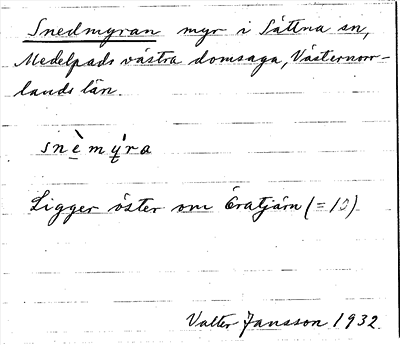 Snedmyran myr i Sättna sn,
Medelpads västra domsaga, Västernorr-
lands län.
snè̱mý̱ra
Ligger öster om Öratjärn (= 10)
Valter Jansson 1932.